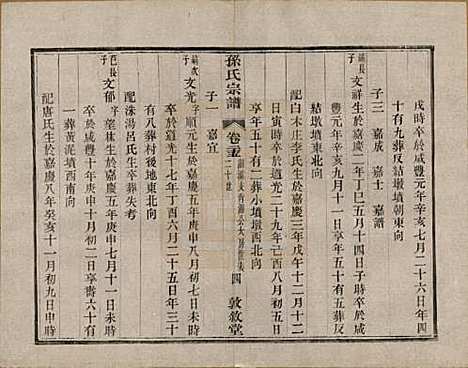 戌時卒於咸豐元年辛亥七月二十六日年四
十有九葬反結墩墳朝東向
子三 嘉成 嘉士 嘉譜
長子 文祥生於嘉慶二年丁巳五月十四日子時卒於咸
豐元年辛亥九月十一日享年五十有五葬反
結墩墳東北向
配白木庄李氏生於嘉慶三年戊午十二月十二
日寅時卒於道光二十九年己酉八月十八日
享年五十有二葬小墳墩西北向
孫氏宗譜 卷 二十世 四 敦敘堂
子一 嘉宜
次子 文光字順元生於嘉慶五年庚申八月初七日未時
卒於道光十七年丁酉六月二十五日年三十
有八葬村後地東北向
配洙湯呂氏生卒葬失考
長子 文郁字望林生於嘉慶五年庚申七月十一日未時
卒於咸豐十年庚申十月十日享壽六十有
一葬黃泥墳西南向
配唐氏生於嘉慶八年癸亥十一月初九日申時